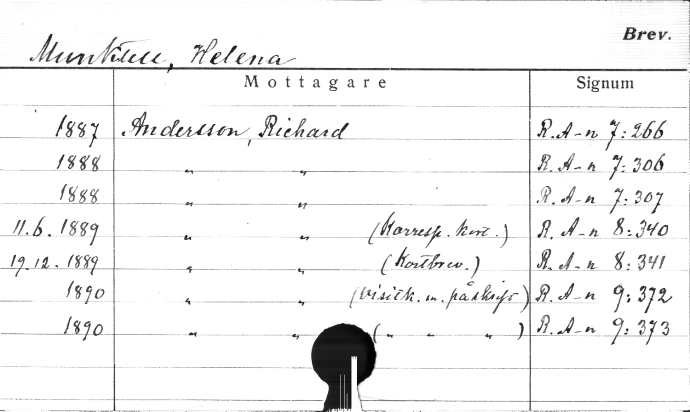 Brev.
Munktell, Helena
Mottagare Signum
1887 Andersson, Richard R. A-n 7:266
1888 " " R. A-n 7:306
1888 " " R. A-n 7:307
11.6. 1889 " " (Korresp. kort.) R. A-n 8:340
19.12. 1889 " " (Kortbrev.) R. A-n 8:341
1890 " " (visitk. m. påskrift) R. A-n 9:372
1890 " " ( " " " ) R. A-n 9:373